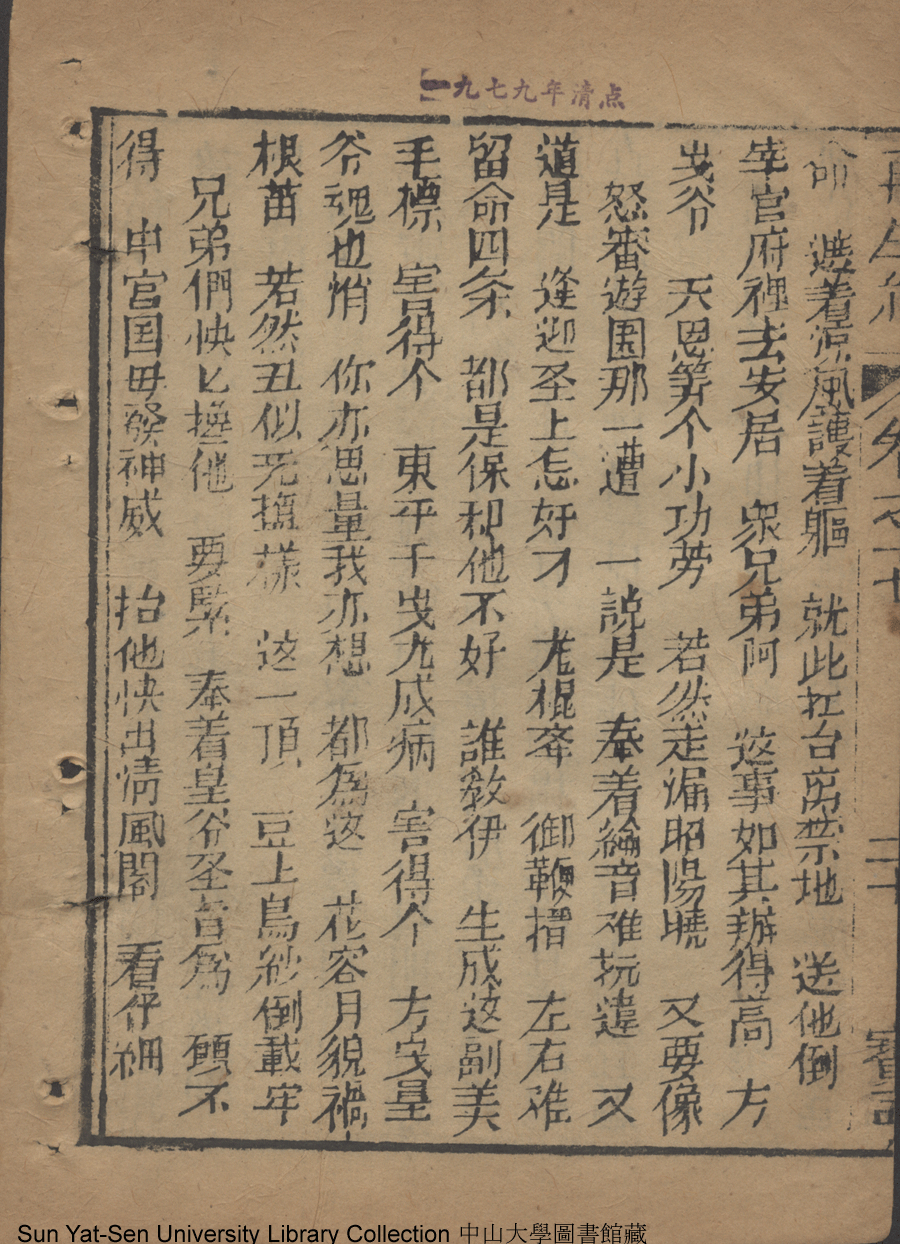 一九七九年清点
再生緣 卷之十 二十
命 遮着凉風護着軀 就此扛台离禁地 送他倒
宰官府裡去安居 衆兄弟阿 这事如其辦得高 方
曳爷 天恩筭个小功劳 若然走漏昭陽曉 又要像
怒審遊园那一遭 一説是 奉着綸音难抗違 又
道是 逢迎圣上怎好才 尨棍夅 御鞭搢 左右难
留命四条 都是保却他不好 誰教伊 生成这副美
毛標 害得个 東平千曳尤成病 害得个 方曳皇
爷魂也悄 你亦思量我亦想 都為这 花容月貌禍
根苗 若然丑似无揎樣 这一頂 豆上烏紗倒載牢
兄弟們快匕攙他 要緊 奉着皇爷圣旨為 頋不
得 中宫国毋發神威 抬他快出清風閣 看仔細
Sun Yat-Sen University Library Collection 中山大學圖書館藏